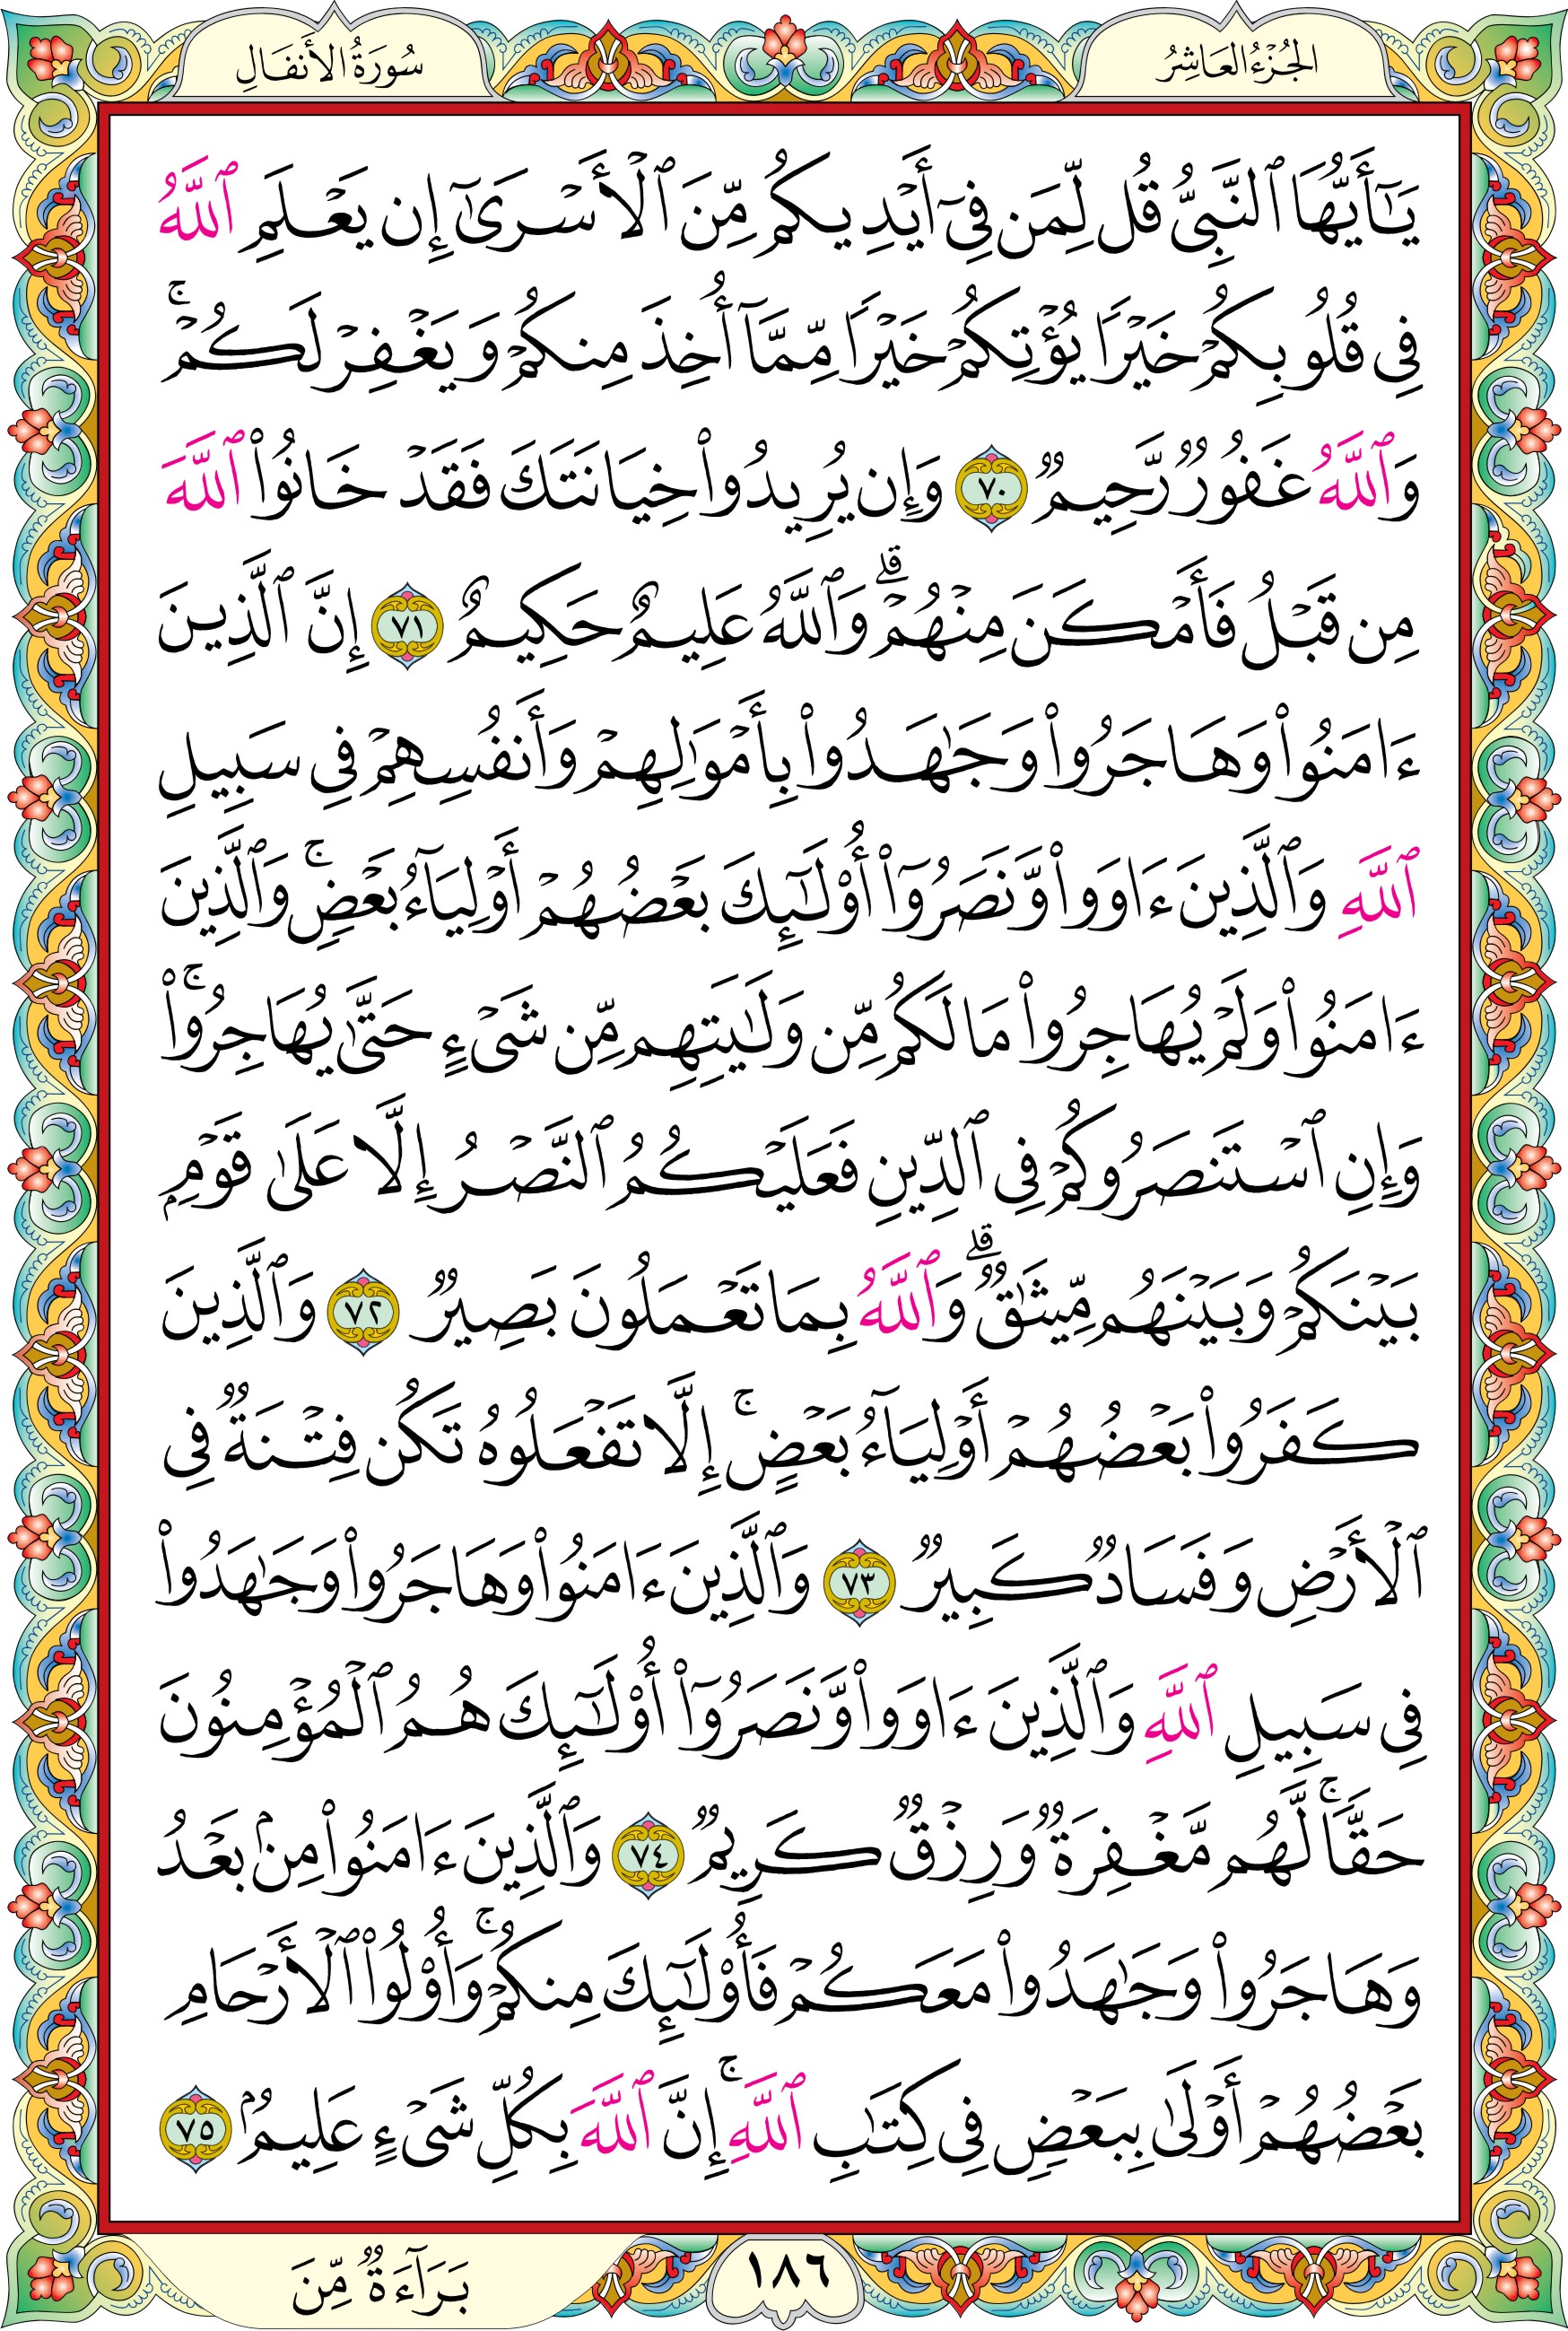 الجُزْءُ العَاشِرُ
سُورَةُ الأَنفَالِ
يَٰٓأَيُّهَا ٱلنَّبِيُّ قُل لِّمَن فِيٓ أَيۡدِيكُم مِّنَ ٱلۡأَسۡرَىٰٓ إِن يَعۡلَمِ ٱللَّهُ
فِي قُلُوبِكُمۡ خَيۡرٗا يُؤۡتِكُمۡ خَيۡرٗا مِّمَّآ أُخِذَ مِنكُمۡ وَيَغۡفِرۡ لَكُمۡۚ
وَٱللَّهُ غَفُورٞ رَّحِيمٞ ٧٠ وَإِن يُرِيدُواْ خِيَانَتَكَ فَقَدۡ خَانُواْ ٱللَّهَ
مِن قَبۡلُ فَأَمۡكَنَ مِنۡهُمۡۗ وَٱللَّهُ عَلِيمٌ حَكِيمٌ ٧١ إِنَّ ٱلَّذِينَ
ءَامَنُواْ وَهَاجَرُواْ وَجَٰهَدُواْ بِأَمۡوَٰلِهِمۡ وَأَنفُسِهِمۡ فِي سَبِيلِ
ٱللَّهِ وَٱلَّذِينَ ءَاوَواْ وَّنَصَرُوٓاْ أُوْلَٰٓئِكَ بَعۡضُهُمۡ أَوۡلِيَآءُ بَعۡضٖۚ وَٱلَّذِينَ
ءَامَنُواْ وَلَمۡ يُهَاجِرُواْ مَا لَكُم مِّن وَلَٰيَتِهِم مِّن شَيۡءٍ حَتَّىٰ يُهَاجِرُواْۚ
وَإِنِ ٱسۡتَنصَرُوكُمۡ فِي ٱلدِّينِ فَعَلَيۡكُمُ ٱلنَّصۡرُ إِلَّا عَلَىٰ قَوۡمِۭ
بَيۡنَكُمۡ وَبَيۡنَهُم مِّيثَٰقٞۗ وَٱللَّهُ بِمَا تَعۡمَلُونَ بَصِيرٞ ٧٢ وَٱلَّذِينَ
كَفَرُواْ بَعۡضُهُمۡ أَوۡلِيَآءُ بَعۡضٍۚ إِلَّا تَفۡعَلُوهُ تَكُن فِتۡنَةٞ فِي
ٱلۡأَرۡضِ وَفَسَادٞ كَبِيرٞ ٧٣ وَٱلَّذِينَ ءَامَنُواْ وَهَاجَرُواْ وَجَٰهَدُواْ
فِي سَبِيلِ ٱللَّهِ وَٱلَّذِينَ ءَاوَواْ وَّنَصَرُوٓاْ أُوْلَٰٓئِكَ هُمُ ٱلۡمُؤۡمِنُونَ
حَقّٗاۚ لَّهُم مَّغۡفِرَةٞ وَرِزۡقٞ كَرِيمٞ ٧٤ وَٱلَّذِينَ ءَامَنُواْ مِنۢ بَعۡدُ
وَهَاجَرُواْ وَجَٰهَدُواْ مَعَكُمۡ فَأُوْلَٰٓئِكَ مِنكُمۡۚ وَأُوْلُواْ ٱلۡأَرۡحَامِ
بَعۡضُهُمۡ أَوۡلَىٰ بِبَعۡضٖ فِي كِتَٰبِ ٱللَّهِۚ إِنَّ ٱللَّهَ بِكُلِّ شَيۡءٍ عَلِيمُۢ ٧٥
١٨٦
بَرَآءَةٞ مِّنَ